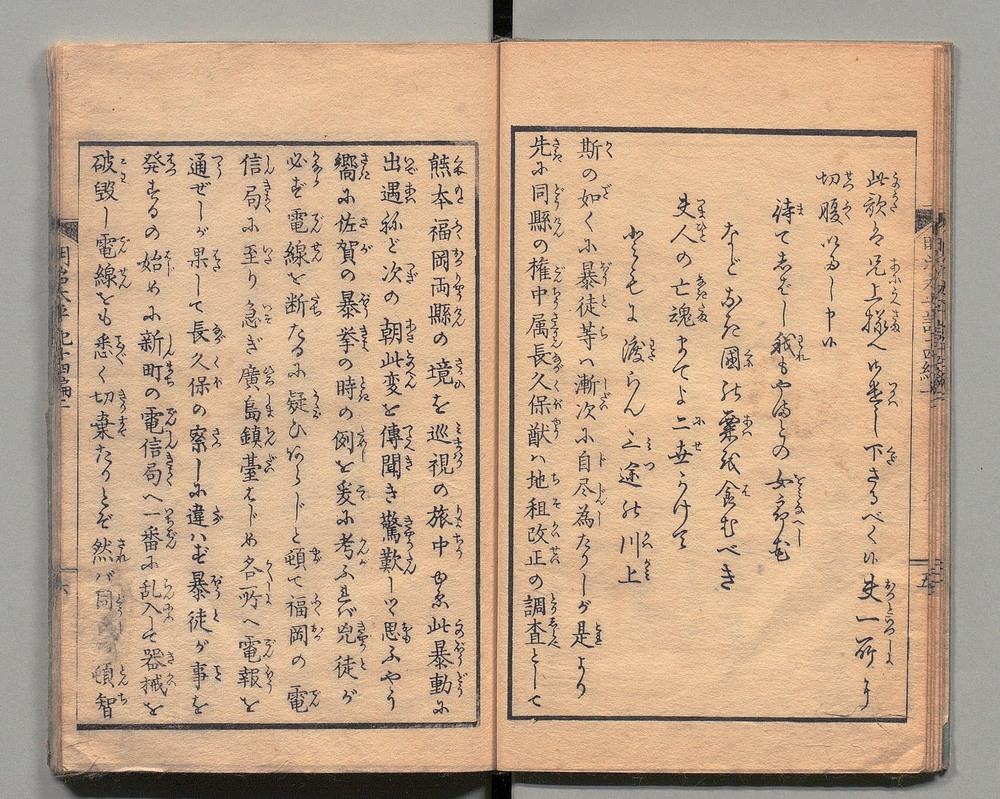 此歌を兄上様へ御贈し下さるべく候夫一所に
切腹いたし申候
待て志ばし我もやまとの女郎花
などあだ國の粟を食むべき
夫人の亡魂まてよ二世かけて
ともに渡らん三途の川上
斯の如くに暴徒等ハ漸次に自尽為たりしが是より
先に同縣の権中属長久保猷ハ地租改正の調査として
熊本福岡両縣の境を巡視の旅中由なく此暴動に
出遇ねど次の朝此変を傳聞き驚歎しつ思ふやう
嚮に佐賀の暴挙の時の例を爰に考ふれバ兇徒が
必ず電線を断たるに疑ひあらじと頓て福岡の電
信局に至り急ぎ廣島鎮臺はじめ各所へ電報を
通ぜしが果して長久保の察しに違ハず暴徒が事を
発するの始めに新町の電信局へ一番に乱入して器械を
破毀し電線をも悉く切棄たりとぞ然バ同 頓智
明治太平記十四編二